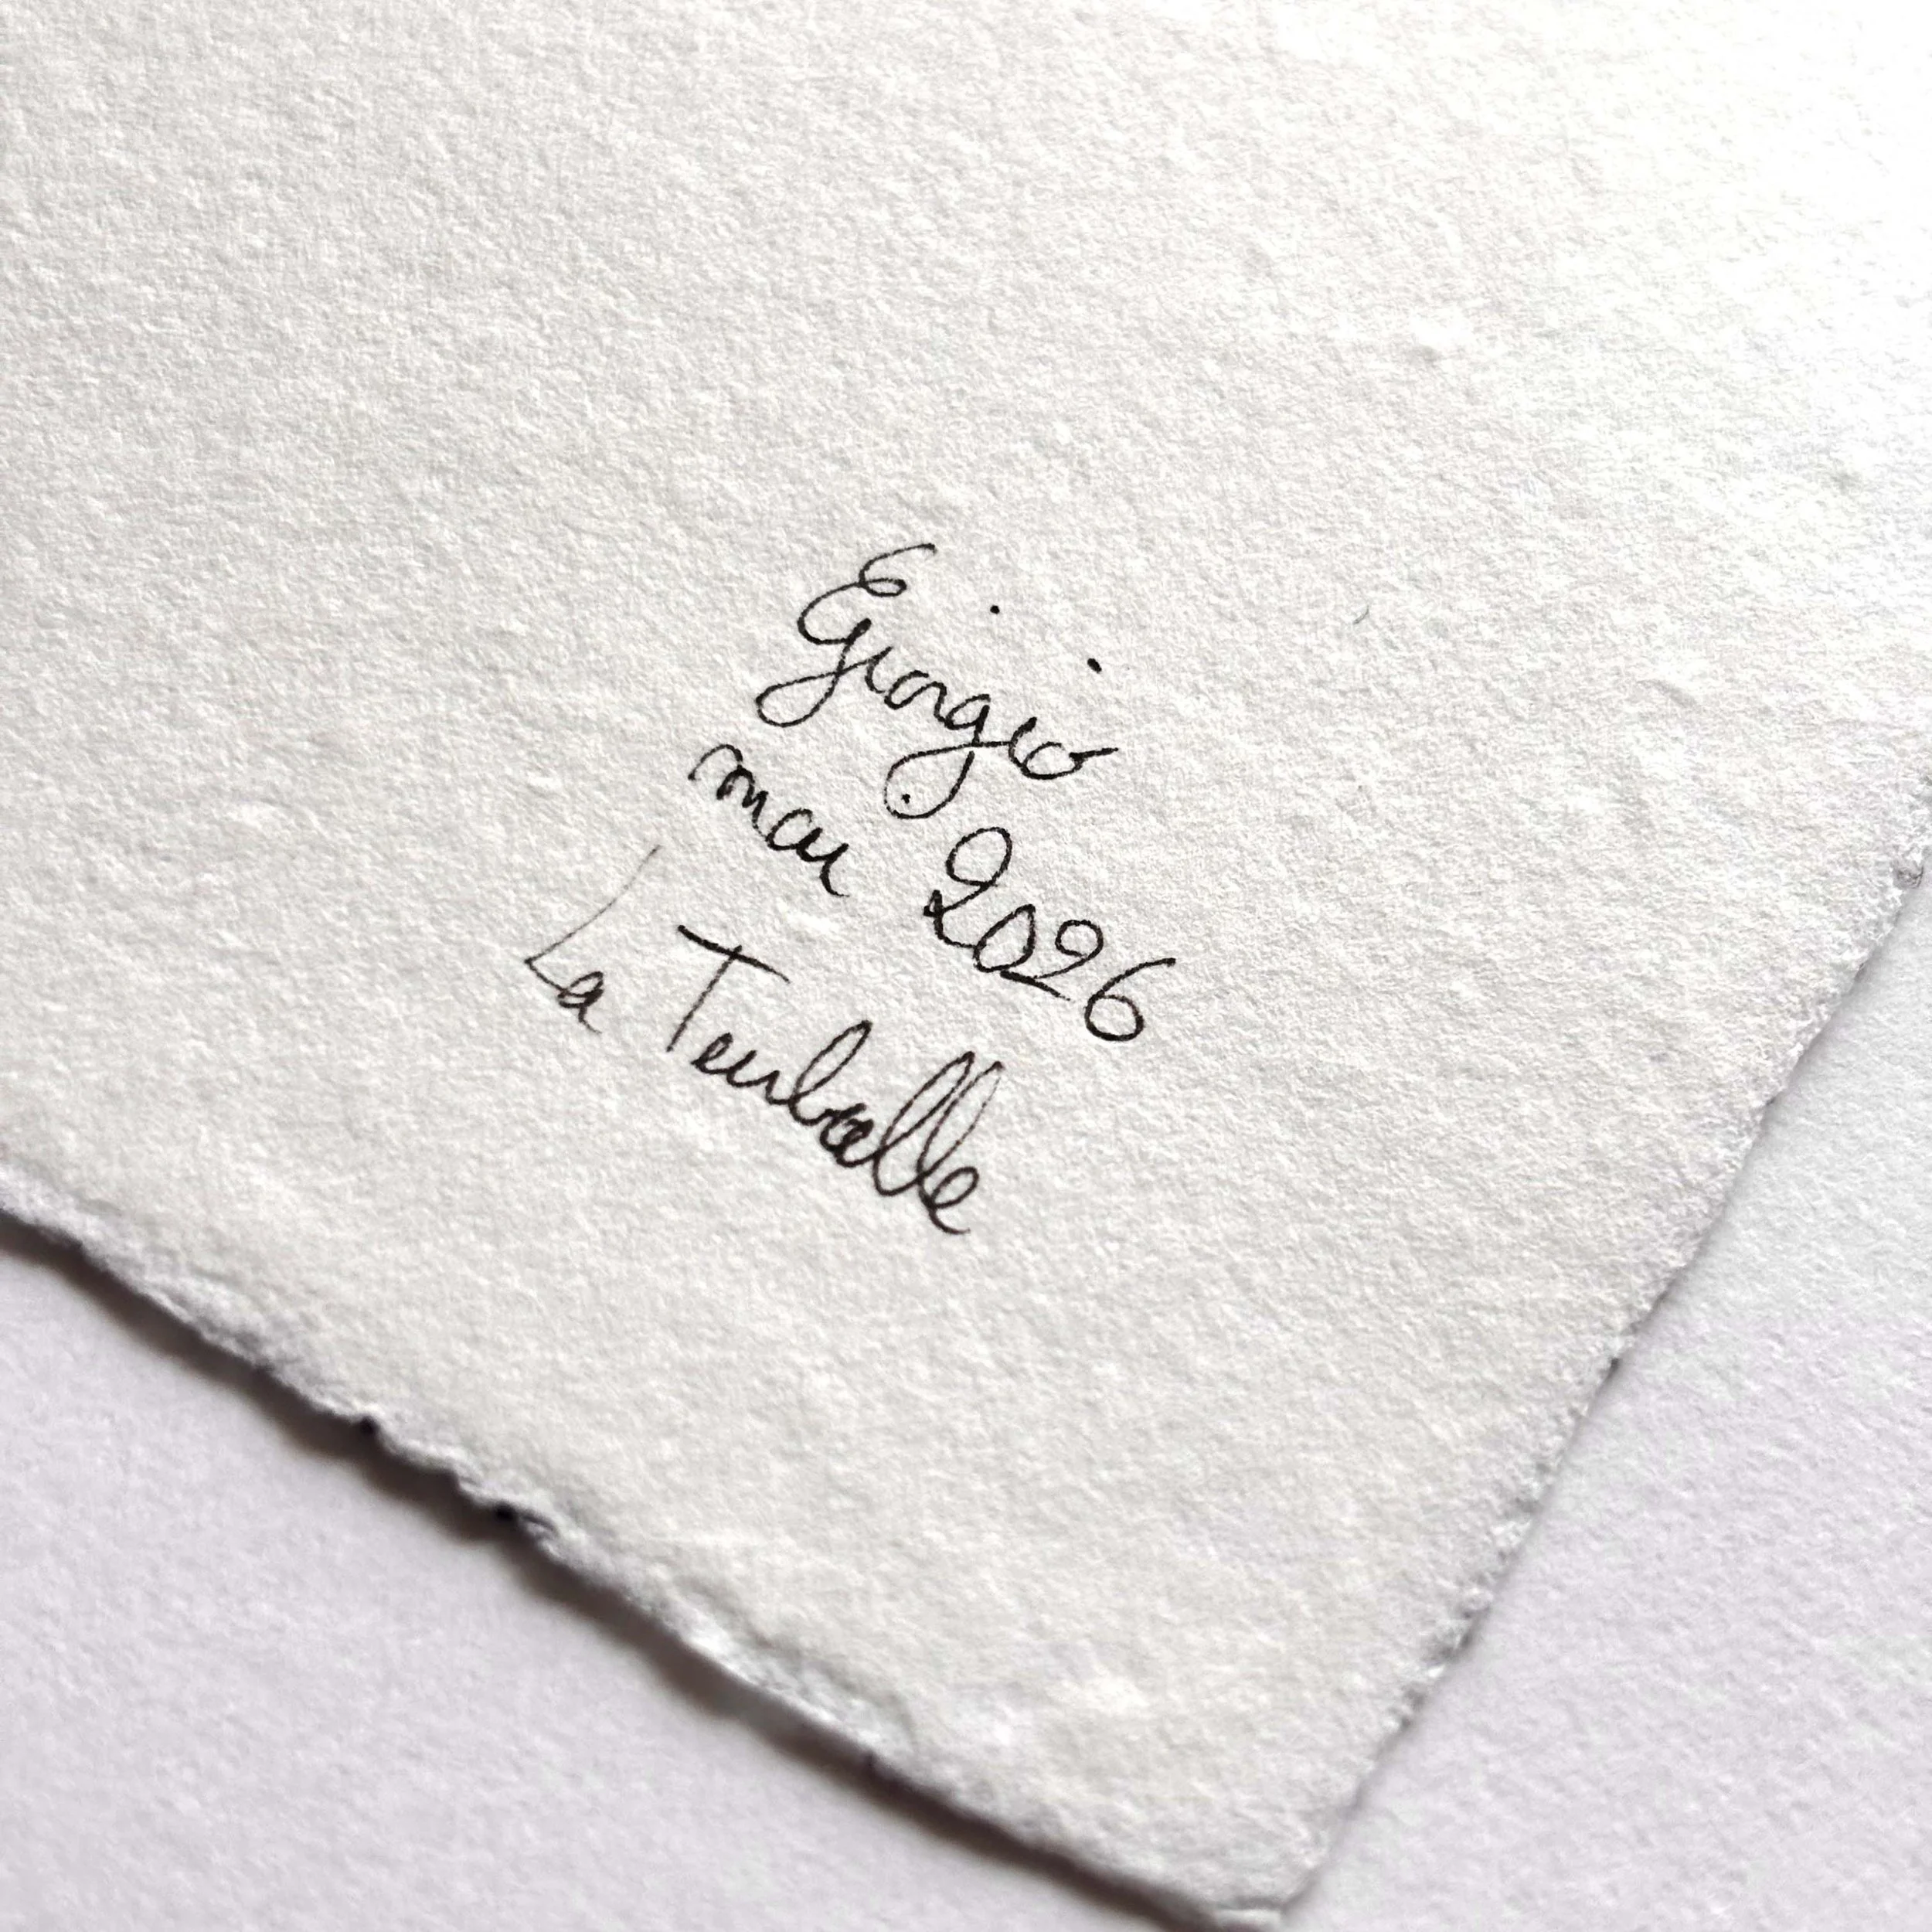 Egiorgio
mai 2026
La Turballe